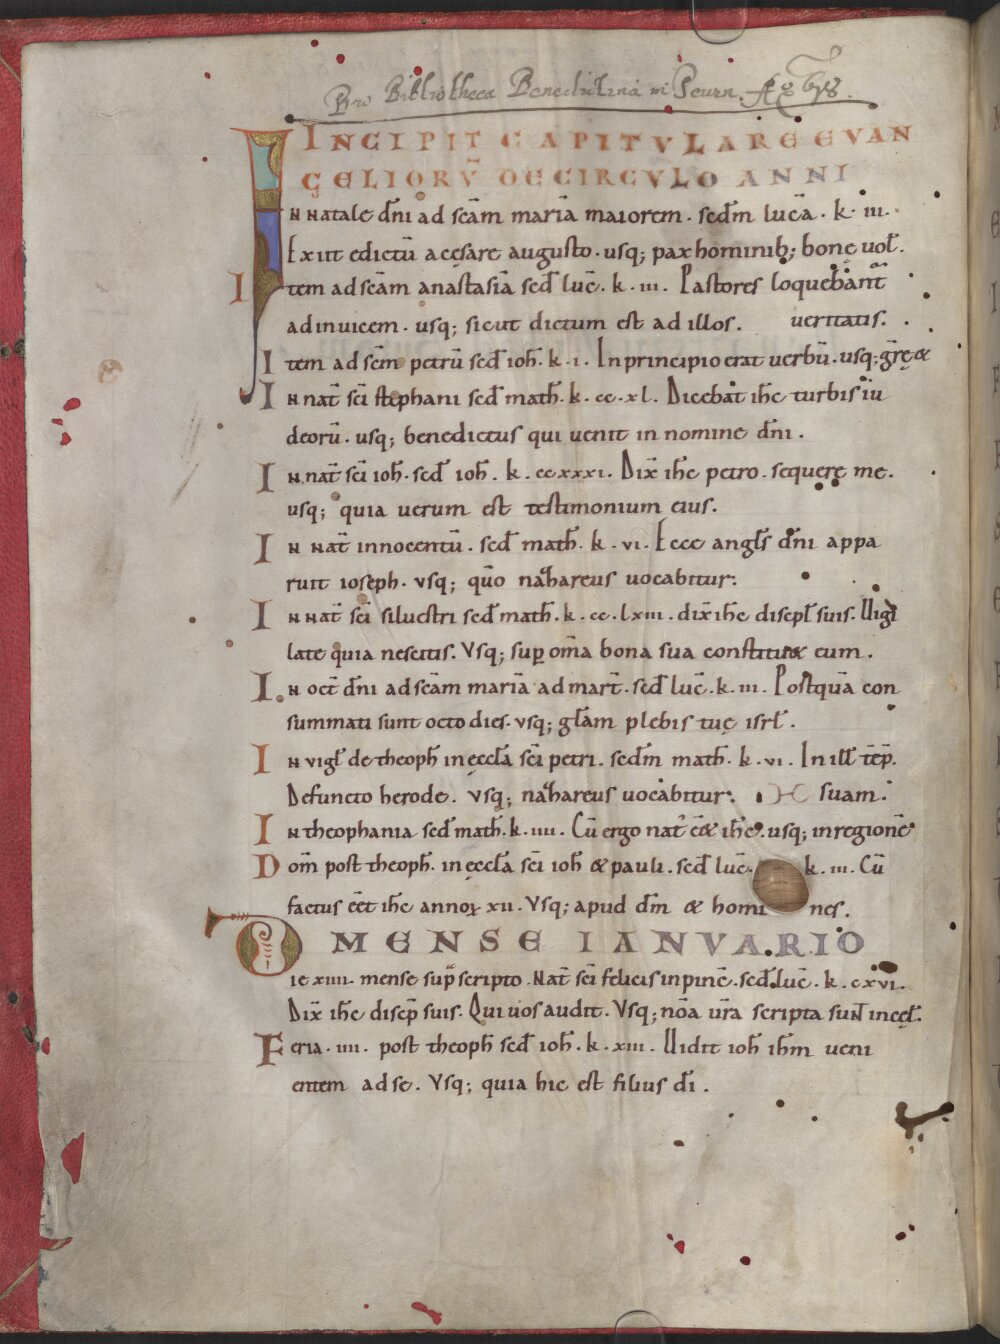 Pro Bibliotheca Benedictina in Peurn.
INCIPIT CAPITVLARE EVAN
GELIORV̄ DE CIRCVLO ANNI
In natale dn̄i ad scām mariā maiorem. scdm̄ lucā. k. iii.
Exiit edictū a cęsare augusto. usq; pax hominib; bonę uol̄.
Item ad scām anastasiā scd̄ luc̄. k. iii. Pastores loquebant̄
adinuicem. usq; sicut dictum est ad illos. ueritatis.
Item ad scm̄ petrū scd̄ ioh̄. k. i. In principio erat uerbū. usq; gr̄ę &
In nat̄ sc̄i stephani scd̄ math̄. k. cc. xl. Dicebat ih̄c turbis iu
deorū. usq; benedictus qui uenit in nomine dn̄i.
In nat̄ sc̄i ioh̄. scd̄ ioh̄. k. ccxxxi. Dix̄ ih̄c petro. sequere me.
usq; quia uerum est testimonium eius.
In nat̄ innocentū. scd̄ math̄. k. vi. Ecce angl̄s dn̄i appa
ruit ioseph. vsq; qūo nazareus uocabitur.
In nat̄ sc̄i siluestri scd̄ math̄. k. cc. lxiii. dix̄ ih̄c discipl̄ suis. Uigi
late quia nescitis. Vsq; sup om̄a bona sua constitu& eum.
In oct̄ dn̄i ad scām mariā ad mart̄. scd̄ luc̄. k. iii. Postquā con
summati sunt octo dies. vsq; gl̄am plebis tuę isrl̄.
In vigl̄ de theoph̄ in ęccl̄a sc̄i petri. scdm̄ math̄. k. vi. In ill̄ tēp̄.
Defuncto herode. Vsq; nazareus uocabitur. suam.
In theophania scd̄ math̄. k. iiii. Cū ergo nat' ēē& ih̄c. usq; in regionē
Dom̄ post theoph̄. in ęccl̄a sc̄i ioh̄ & pauli. scd̄ luc̄. k. iii. Cū
factus ēēt ih̄c annoꝝ xii. Vsq; apud dm̄ & homines.
MENSE IANVARIO
Die xiiii. mense sup̄scripto. Nat̄ sc̄i felicis in pinc̄. scd̄ luc̄. k. cxvi.
Dix̄ ih̄c discip̄ suis. Qui uos audit. Vsq; nōa ūra scripta sunt in cęl̄.
Feria. iiii. post theoph̄ scd̄ ioh̄. k. xiii. Uidit ioh̄ ih̄m ueni
entem ad se. Vsq; quia hic est filius dī.